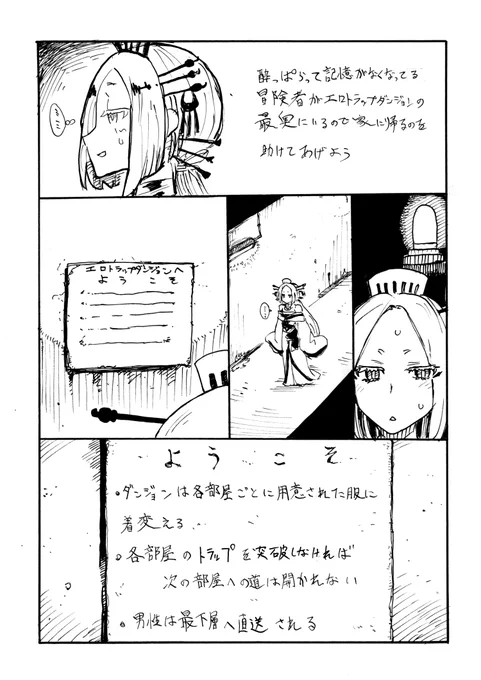 酔っぱらって記憶がなくなってる
冒険者がエロトラップダンジョンの
最奥にいるので家に帰るのを
助けてあげよう
エロトラップダンジョンへ
ようこそ
ようこそ
•ダンジョンは各部屋ごとに用意された服に
着変える
•各部屋のトラップを突破しなければ
次の部屋への道は開かれない
•男性は最下層へ直送される